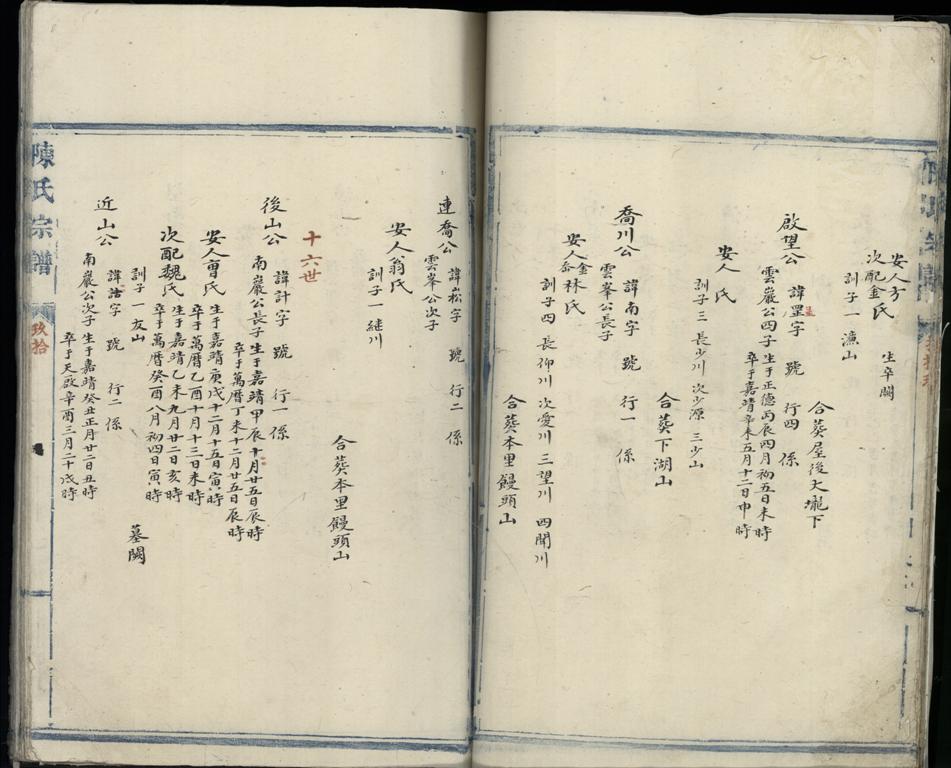 安人方
次配金氏
生卒闕
訓子一 漁山
合葬屋後大壠下
啟望公
諱罡字 號 行四 係
雲巖公四子
生于正德丙辰四月初五日未時
卒于嘉靖辛未五月十二日申時
安人 氏
訓子三 長少川 次少源 三少山
合葬下湖山
喬川公
諱南字 號 行一 係
雲峯公長子
安人金 林氏
訓子四 長仰川 次愛川 三望川 四聞川
合葬本里饅頭山
連喬公
諱松字 號 行二 係
雲峯公次子
安人翁氏
訓子一 継川
合葬本里饅頭山
十六世
後山公
諱計字 號 行一 係
南巖公長子
生于嘉靖甲辰十月廿五日辰時
卒于萬曆丁未十二月廿五日辰時
安人曹氏
生于嘉靖庚戌十二月十五日寅時
卒于萬曆乙酉十月十三日未時
次配魏氏
生于嘉靖乙未九月廿二日亥時
卒于萬曆癸酉八月初四日寅時
訓子一 友山
墓闕
近山公
諱詰字 號 行二 係
南巖公次子
生于嘉靖癸丑正月廿二日丑時
卒于天啟辛酉三月二十戌時
陳氏宗譜
玖拾